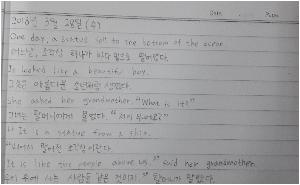 2018년 3월 28일 (수)
One day, a statue fell to the bottom of the ocean.
어느날, 조각상 하나가 바다 밑으로 떨어졌다.
It looked like a beautiful boy.
그것은 아름다운 소년처럼 생겼다.
She asked her grandmother. "What is it?"
그녀는 할머니에게 물었다. "저게 뭐예요?"
" It is a statue from a ship.
"배에서 떨어진 조각상이란다.
It is like the people above us." said her grandmother.
우리 위에 사는 사람들 같은 것이지." 할머니가 말했다.